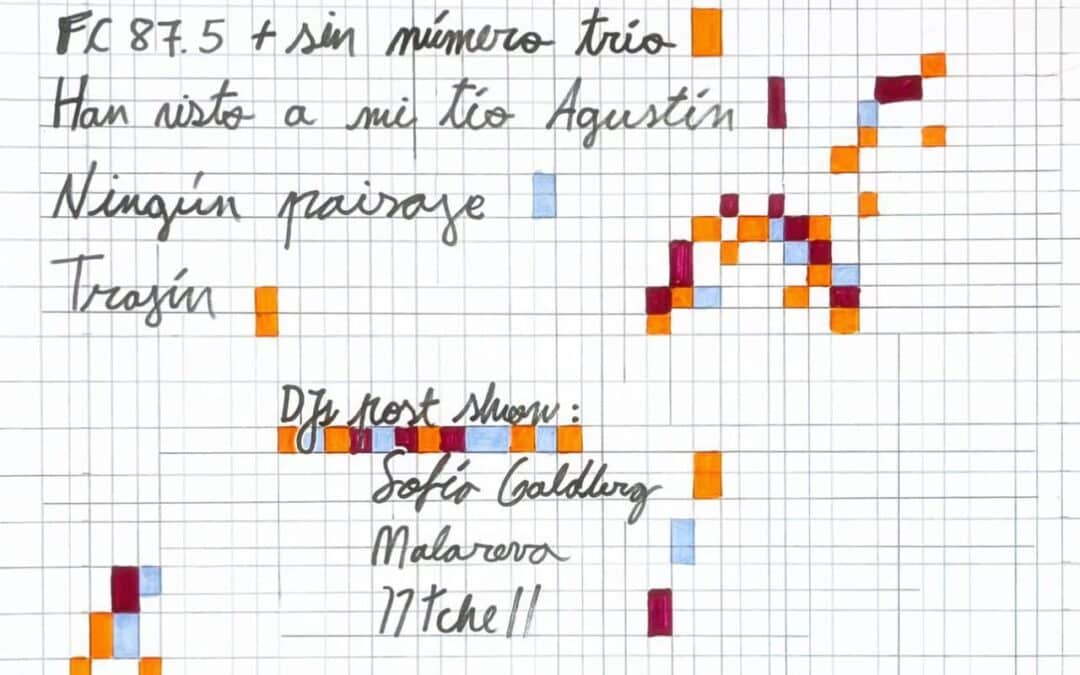 FC 87.5 + sin número trío
Han visto a mi tío Agustín
Ningún paisaje
Trajín
DJs post show:
Sofía Galdberg
Malareva
11tchell